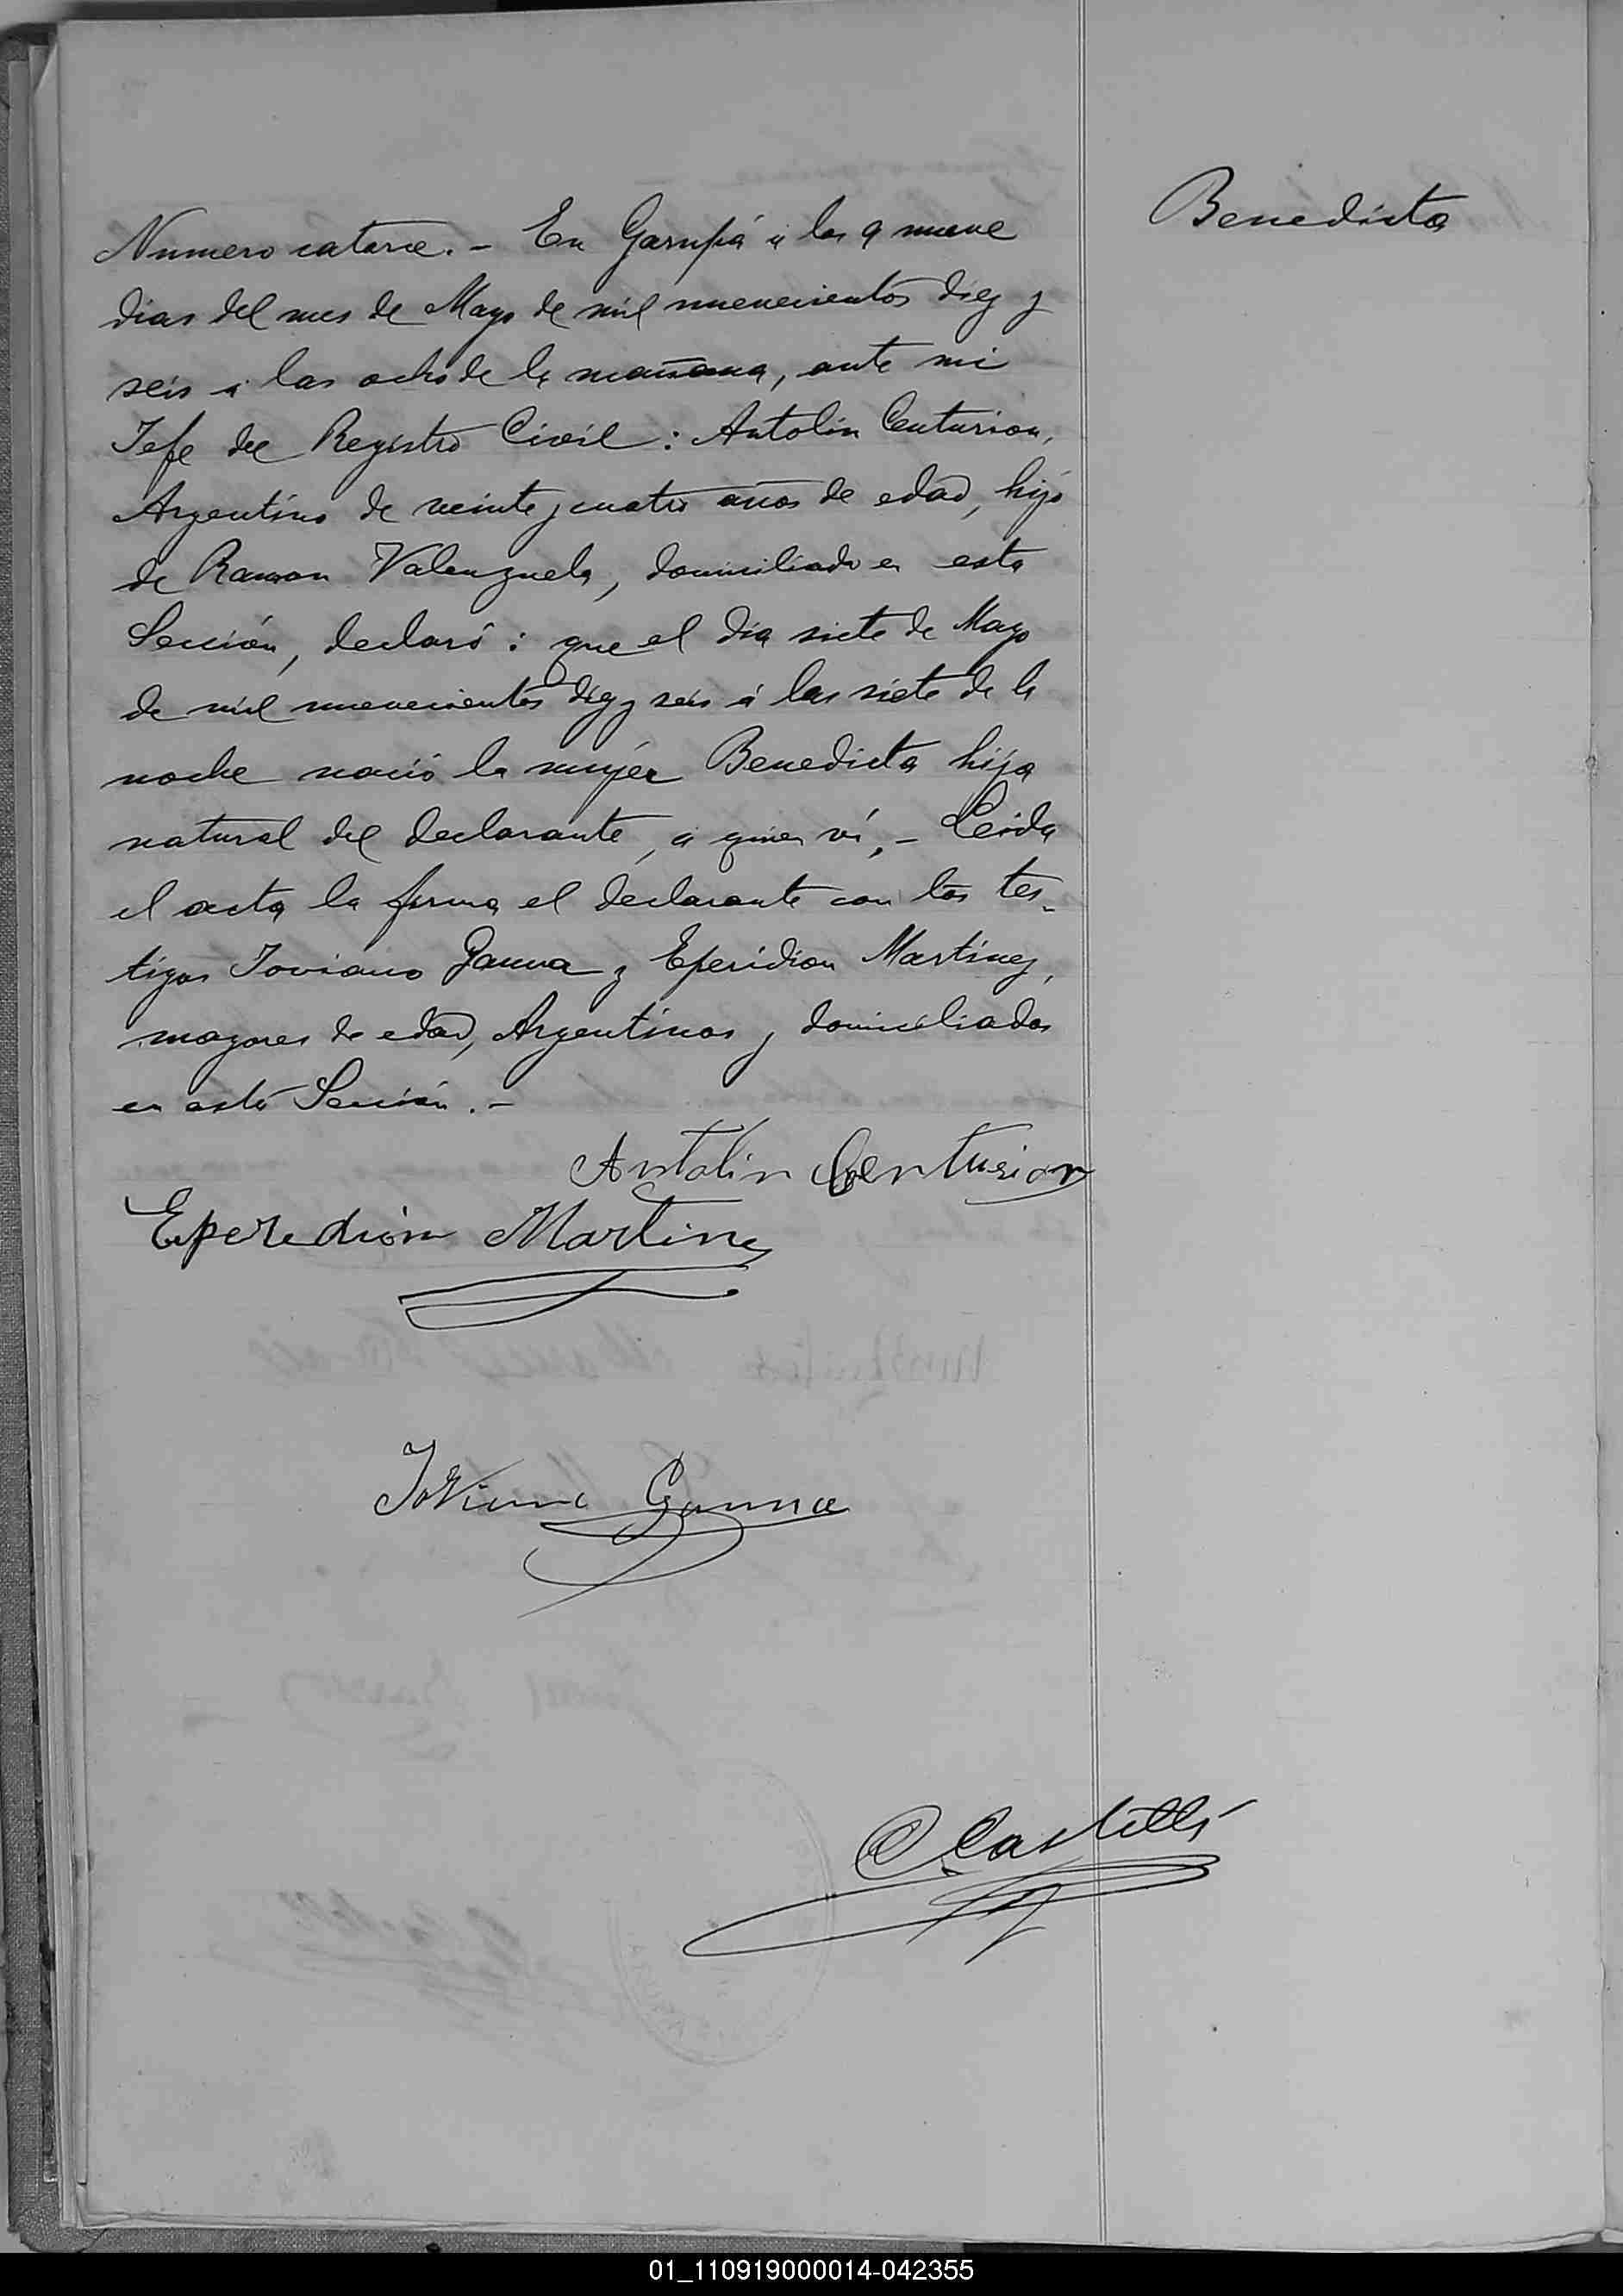 Benedicta
Numero catorce. - En Garupá á los 9 nueve
dias del mes de Mayo de mil novecientos diez y
seis á las ocho de la mañana, ante mi
Jefe del Registro Civil : Antolin Centurion,
Argentino de veinte y cuatro años de edad, hijo
de Ramon Valenzuela, domiciliado en esta
Sección, declaró : que el dia siete de Mayo
de mil novecientos diez y seis á las siete de la
noche nació la mujer Benedicta hija
natural del declarante, a quien ví, - Leida
el acta la firma el declarante con los tes-
tigos Joviano Gauna y Eperidion Martinez,
mayores de edad, Argentinos y domiciliados
en esta Sección. -
Antolin Centurion
Eperedion Martinez
Joviano Gauna
C Castelli
01_110919000014-042355